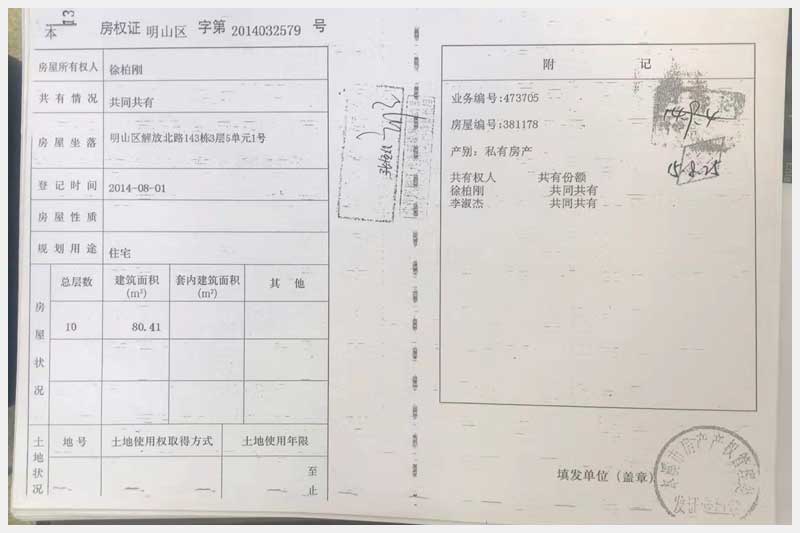 本 房权证 明山区 字第 2014032579 号
房屋所有权人 徐柏刚
共有情况 共同共有
房屋坐落 明山区解放北路143栋3层5单元1号
登记时间 2014-08-01
房屋性质
规划用途 住宅
房屋状况
总层数 建筑面积(m²) 套内建筑面积(m²) 其他
10 80.41
土地状况
地号 土地使用权取得方式 土地使用年限
至
止
附 记
业务编号:473705
房屋编号:381178
产别:私有房产
共有权人 共有份额
徐柏刚 共同共有
李淑杰 共同共有
15.8.25
填发单位(盖章)